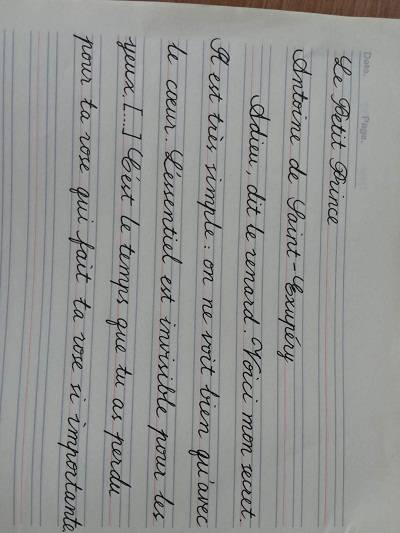 Date.
Page.
Le Petit Prince
Antoine de Saint-Exupéry
Adieu, dit le renard. Voici mon secret.
Il est très simple : on ne voit bien qu'avec
le cœur. L'essentiel est invisible pour les
yeux. [...] C'est le temps que tu as perdu
pour ta rose qui fait ta rose si importante.